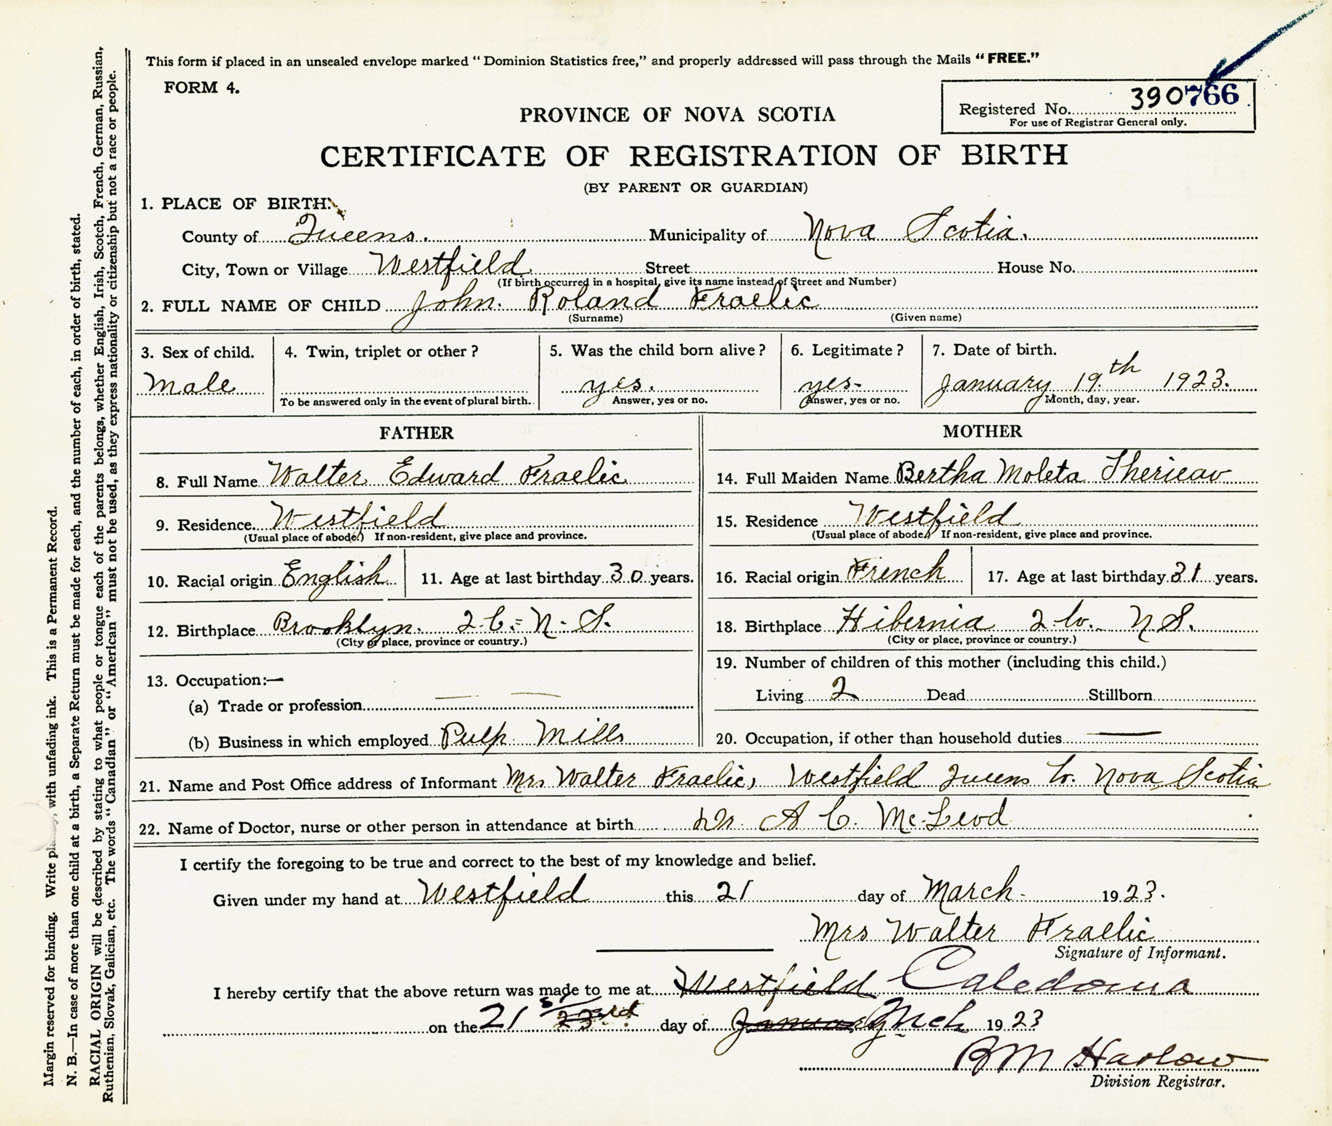 This form if placed in an unsealed envelope marked "Dominion Statistics free," and properly addressed will pass through the Mails "FREE."
FORM 4.
Registered No. 390766
For use of Registrar General only.
PROVINCE OF NOVA SCOTIA
CERTIFICATE OF REGISTRATION OF BIRTH
(BY PARENT OR GUARDIAN)
1. PLACE OF BIRTH:
County of Queens. Municipality of Nova Scotia.
City, Town or Village Westfield Street House No.
(If birth occurred in a hospital, give its name instead of Street and Number)
2. FULL NAME OF CHILD John Roland Fraelic
(Surname) (Given name)
3. Sex of child. 4. Twin, triplet or other? 5. Was the child born alive? 6. Legitimate? 7. Date of birth.
Male yes. yes- January 19th 1923.
To be answered only in the event of plural birth. Answer, yes or no. Answer, yes or no. Month, day, year.
FATHER
8. Full Name Walter Edward Fraelic
9. Residence Westfield
(Usual place of abode) If non-resident, give place and province.
10. Racial origin English 11. Age at last birthday 30 years.
12. Birthplace Brooklyn. Q C. N. S.
(City or place, province or country.)
13. Occupation:—
(a) Trade or profession — —
(b) Business in which employed Pulp Mills
MOTHER
14. Full Maiden Name Bertha Moleta Therieav
15. Residence Westfield
(Usual place of abode) If non-resident, give place and province.
16. Racial origin French 17. Age at last birthday 31 years.
18. Birthplace Hibernia Q Co. N S.
(City or place, province or country.)
19. Number of children of this mother (including this child.)
Living 2 Dead Stillborn
20. Occupation, if other than household duties —
21. Name and Post Office address of Informant Mrs Walter Fraelic, Westfield Queens Co. Nova Scotia
22. Name of Doctor, nurse or other person in attendance at birth Dr. A C. McLeod
I certify the foregoing to be true and correct to the best of my knowledge and belief.
Given under my hand at Westfield this 21 day of March 1923.
Mrs Walter Fraelic
Signature of Informant.
I hereby certify that the above return was made to me at Westfield Caledonia
on the 21st 23rd day of January Mch 1923
B M Harlow
Division Registrar.
Margin reserved for binding. Write with unfading ink. This is a Permanent Record.
N. B.—In case of more than one child at a birth, a Separate Return must be made for each, and the number of each, in order of birth, stated.
RACIAL ORIGIN will be described by stating to what people or tongue each of the parents belongs, whether English, Irish, Scotch, French, German, Russian,
Ruthenian, Slovak, Galician, etc. The words "Canadian" or "American" must not be used, as they express nationality or citizenship but not a race or people.